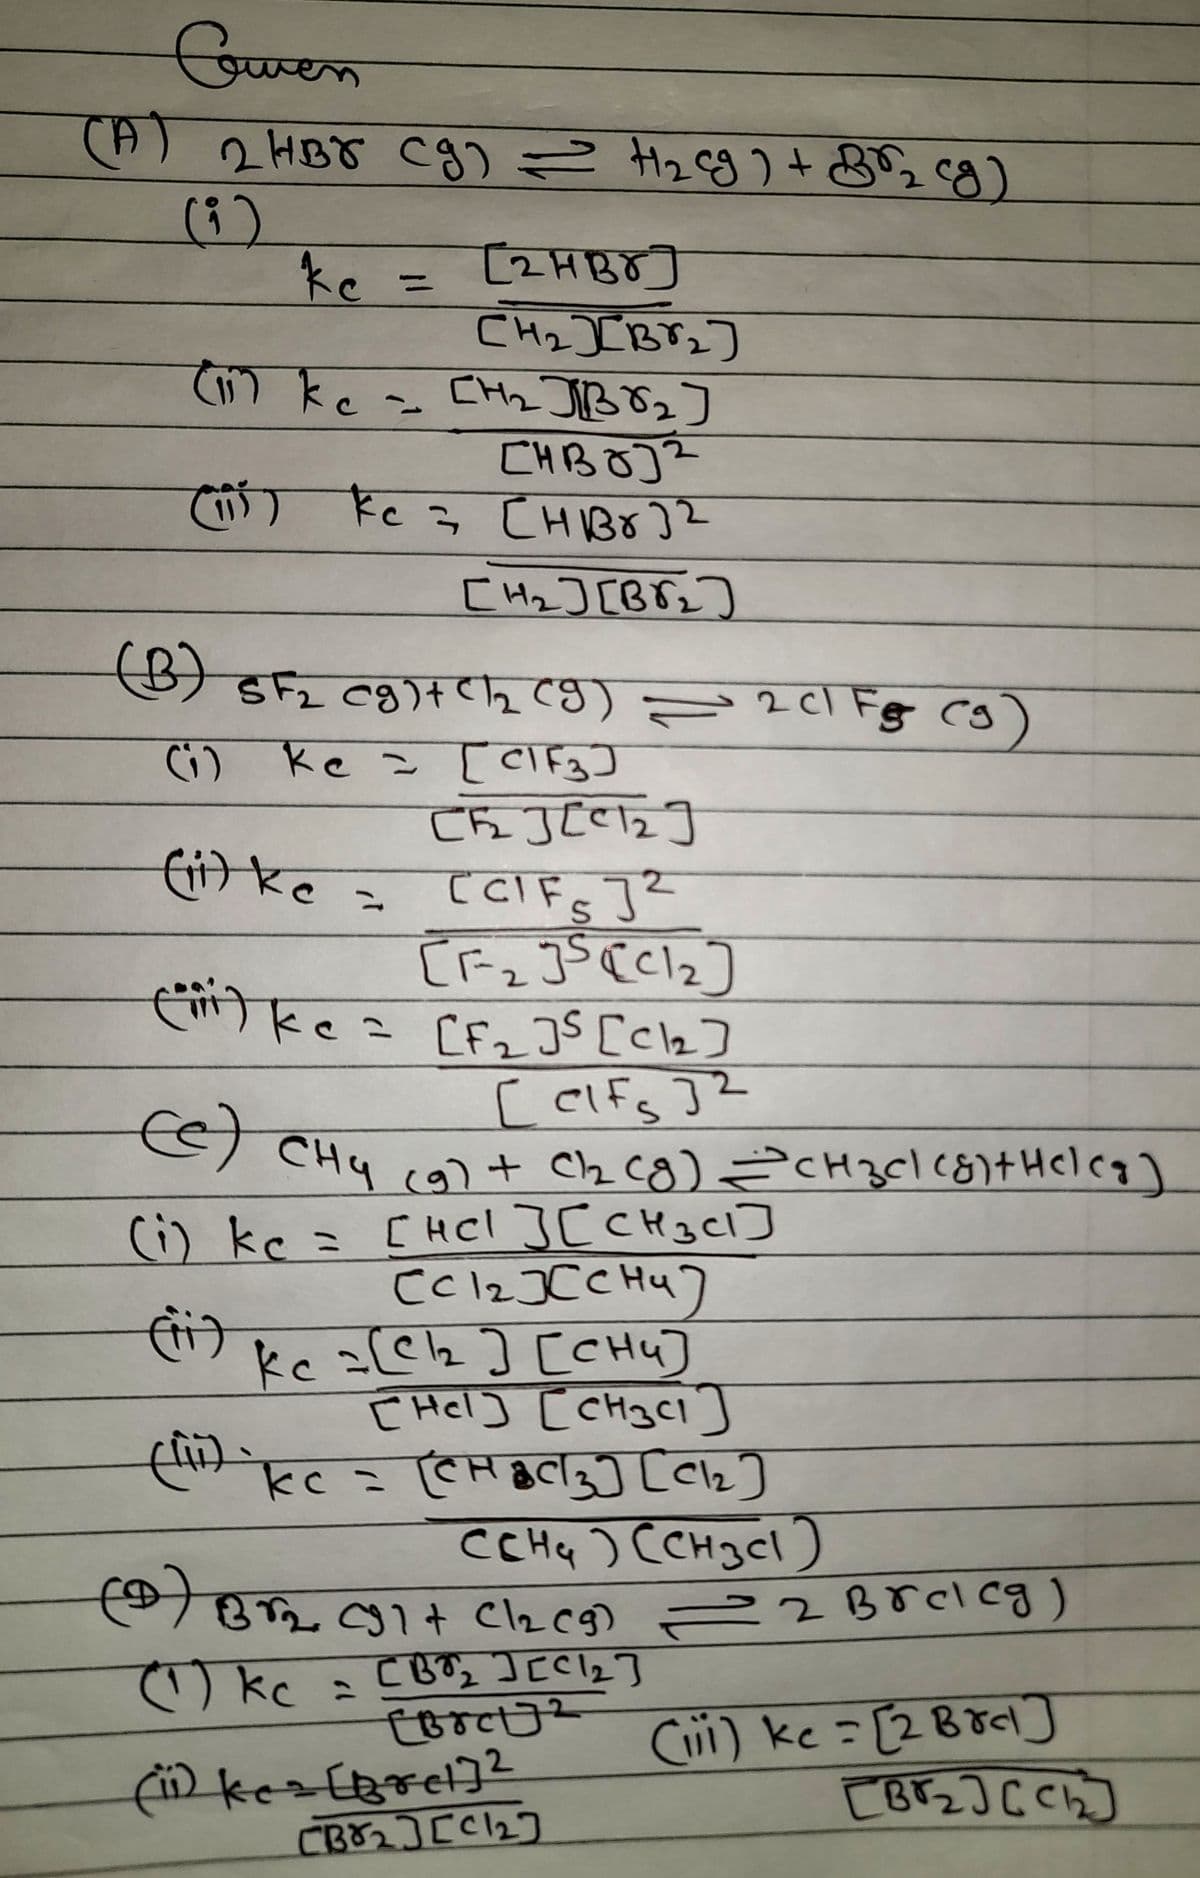 Given
(A) 2HBr (g) ⇌ H2(g) + Br2(g)
(i)
kc = [2HBr]
[H2][Br2]
(ii) kc = [H2][Br2]
[HBr]²
(iii) kc = [HBr]²
[H2][Br2]
(B) 5F2 (g) + Cl2 (g) ⇌ 2ClF5 (g)
(i) kc = [ClF3]
[F2][Cl2]
(ii) kc = [ClF5]²
[F2]⁵[Cl2]
(iii) kc = [F2]⁵[Cl2]
[ClF5]²
(C) CH4 (g) + Cl2 (g) ⇌ CH3Cl (g) + HCl (g)
(i) kc = [HCl][CH3Cl]
[Cl2][CH4]
(ii) kc = [Cl2][CH4]
[HCl][CH3Cl]
(iii) kc = [CHCl3][Cl2]
[CH4)(CH3Cl)
(D) Br2 (g) + Cl2 (g) ⇌ 2BrCl (g)
(i) kc = [Br2][Cl2]
[BrCl]²
(ii) kc = [BrCl]²
[Br2][Cl2]
(iii) kc = [2BrCl]
[Br2][Cl2]